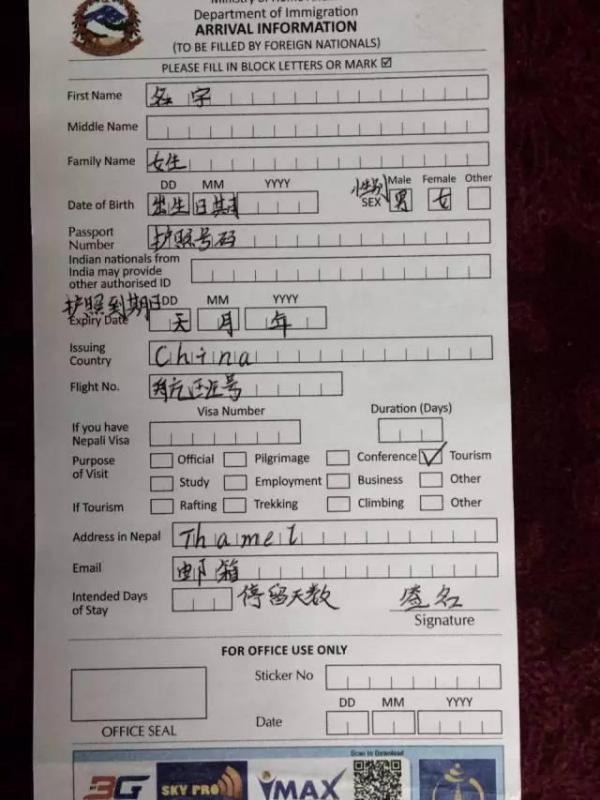 Department of Immigration
ARRIVAL INFORMATION
(TO BE FILLED BY FOREIGN NATIONALS)
PLEASE FILL IN BLOCK LETTERS OR MARK ☑
First Name 名字
Middle Name
Family Name 女生
DD MM YYYY 性别 Male Female Other
Date of Birth 出生日期 SEX 男 女
Passport Number 护照号码
Indian nationals from
India may provide
other authorised ID
护照到期日 DD MM YYYY
Expiry Date 天 月 年
Issuing Country China
Flight No. 号
Visa Number Duration (Days)
If you have
Nepali Visa
Purpose of Visit Official Pilgrimage Conference ✓ Tourism
Study Employment Business Other
If Tourism Rafting Trekking Climbing Other
Address in Nepal Thamel
Email 邮箱
Intended Days of Stay 停留天数 签名
Signature
FOR OFFICE USE ONLY
Sticker No
DD MM YYYY
OFFICE SEAL Date
Scan to Download
3G SKY PRO MAX